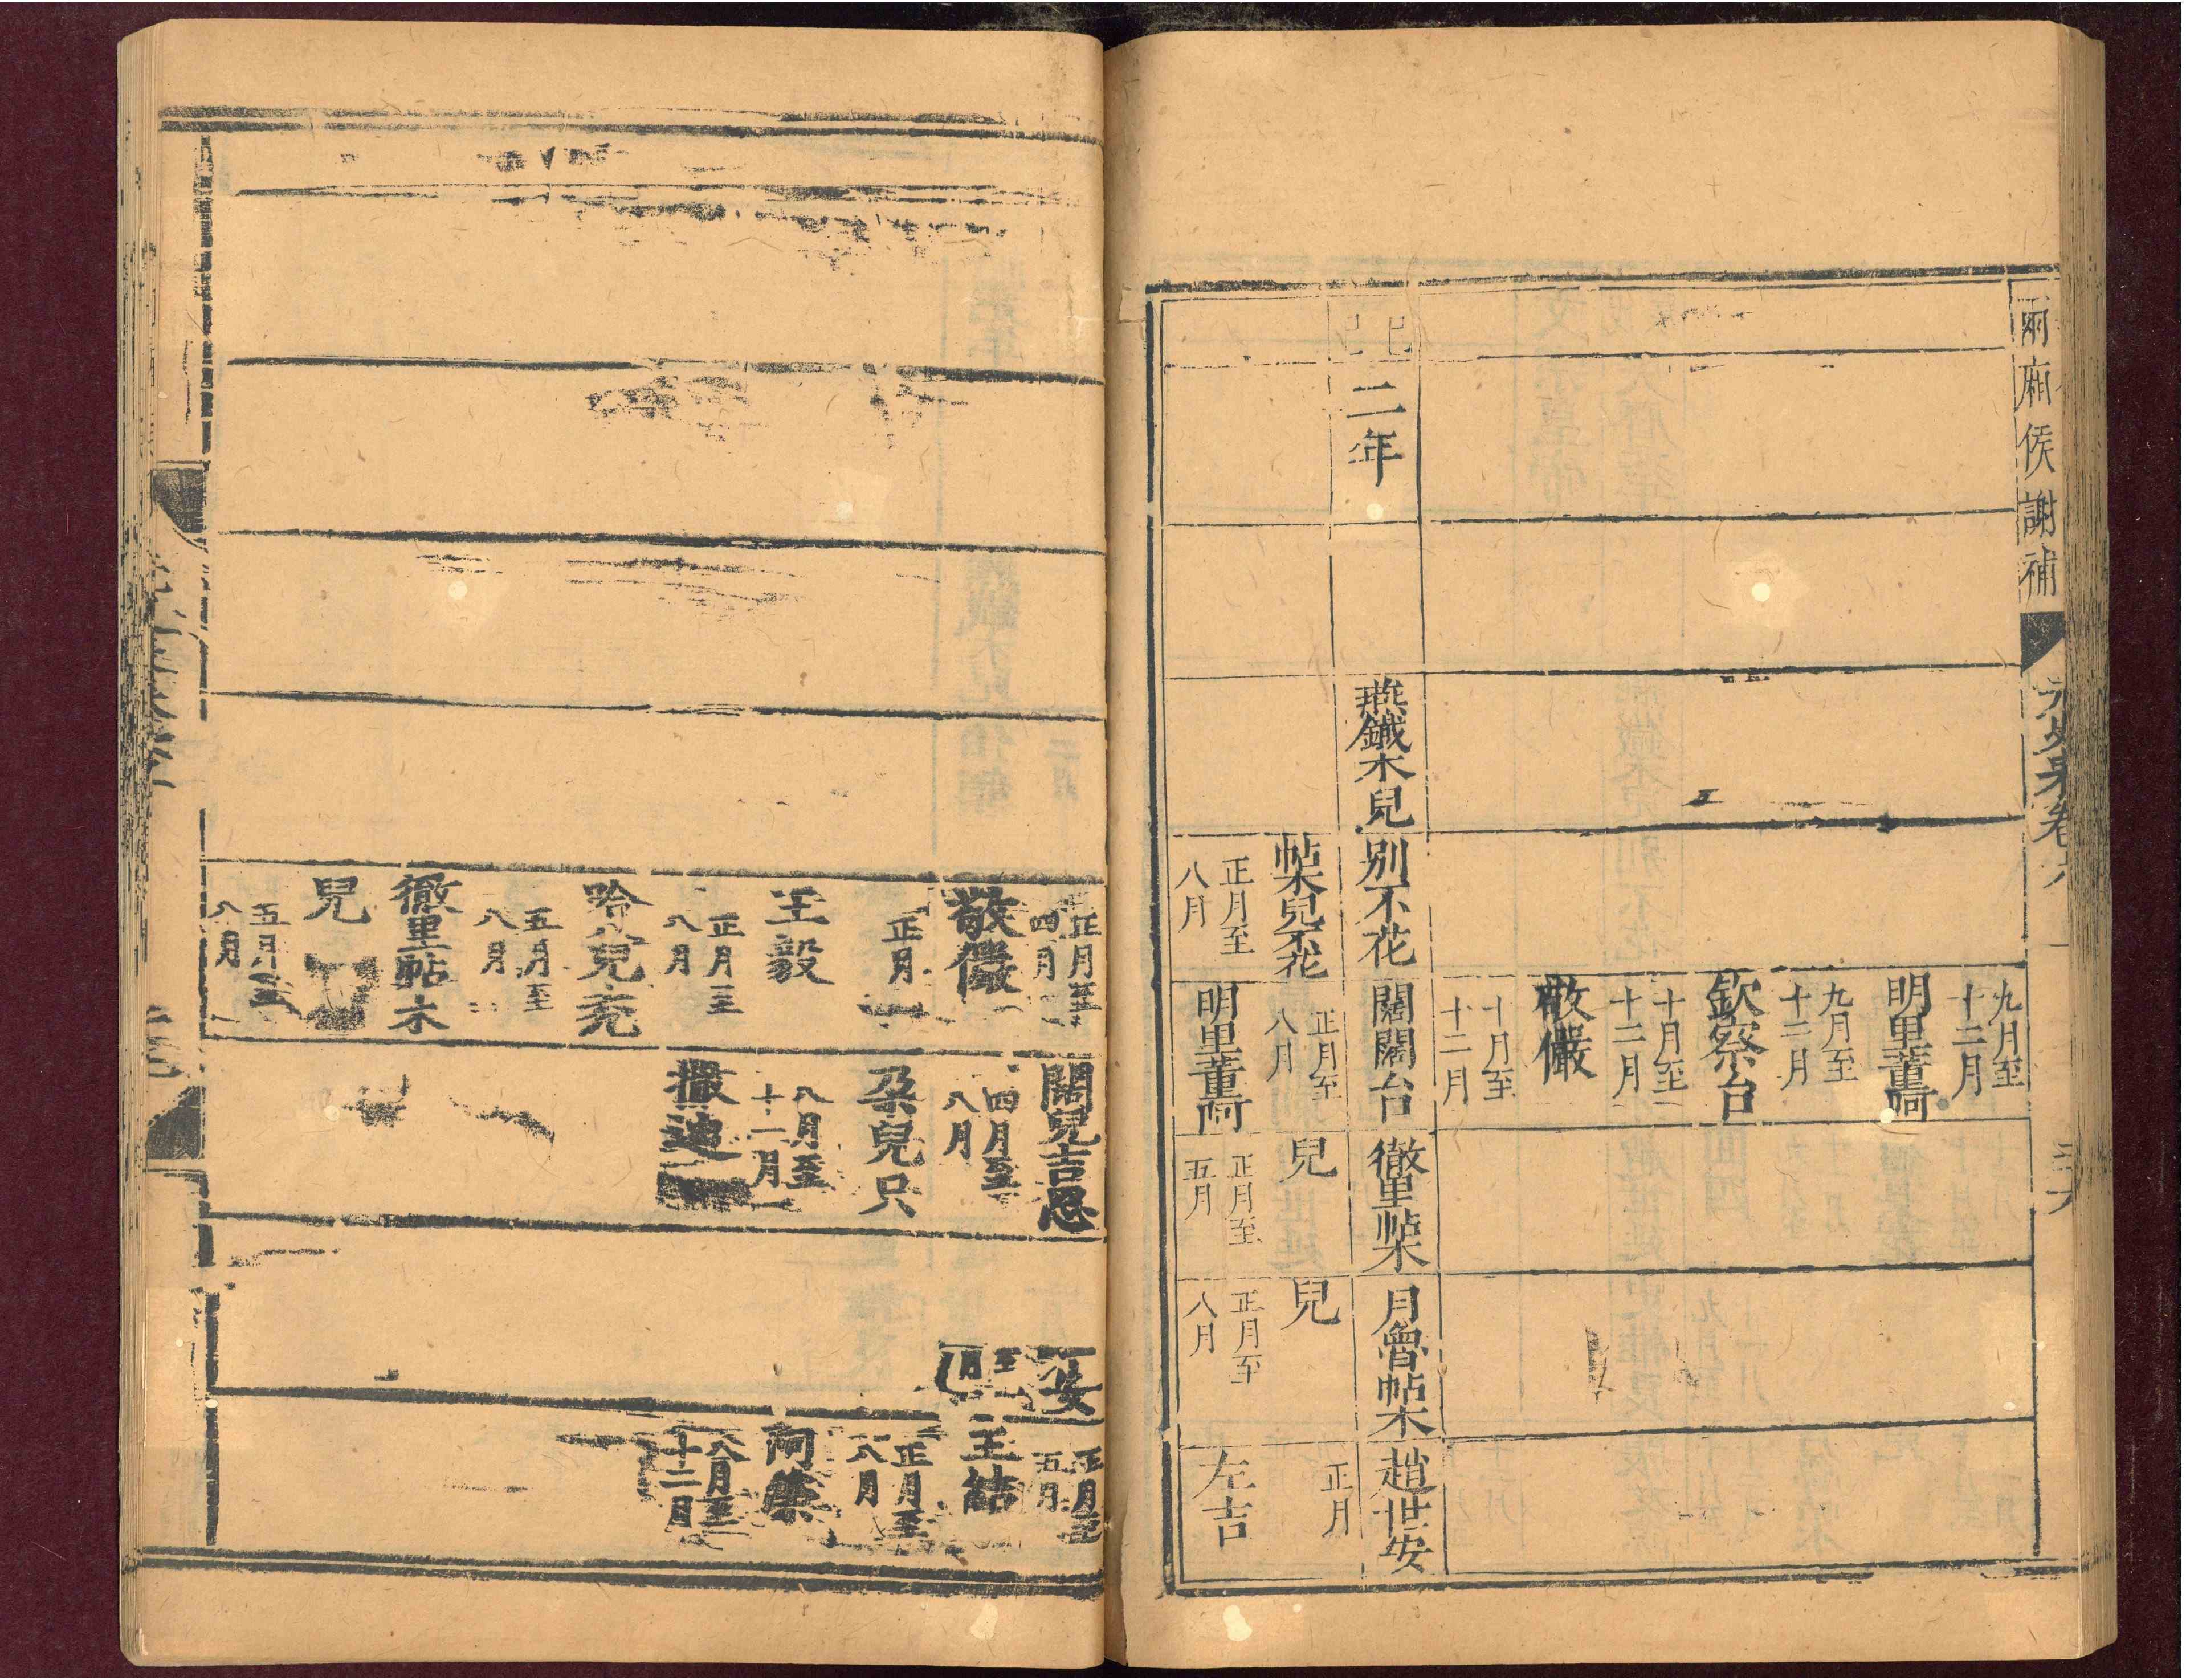 兩廂侯謝補
元史表卷六
九月至
十二月
明里董阿
九月至
十二月
欽察台
十月至
十二月
敬儼
十月至
十二月
己巳
二年
燕鐵木兒
別不花
闊闊台
徹里帖木
月魯帖木
趙世安
帖木兒不花
正月至
八月
正月至
八月
明里董阿
兒
正月至
五月
兒
正月至
八月
正月
左吉
正月至
四月
敬儼
正月
王毅
正月至
八月
哈八兒禿
五月至
八月
徹里帖木
兒
五月至
八月
闊兒吉思
四月至
八月
朶兒只
八月至
十二月
撒迪
安
正月至
五月
王結
正月至
八月
阿榮
八月至
十二月